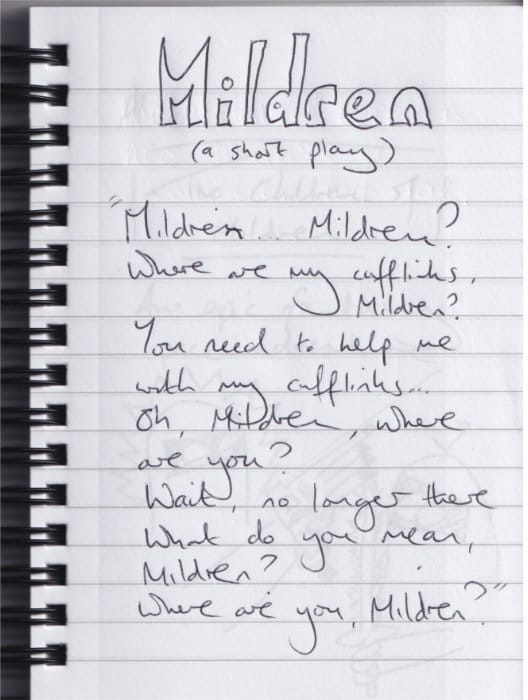 Mildren
(a short play)
"Mildren... Mildren?
Where are my cufflinks,
Mildren?
You need to help me
with my cufflinks...
Oh, Mildren, where
are you?
Wait, no longer there
What do you mean,
Mildren?
Where are you, Mildren?"